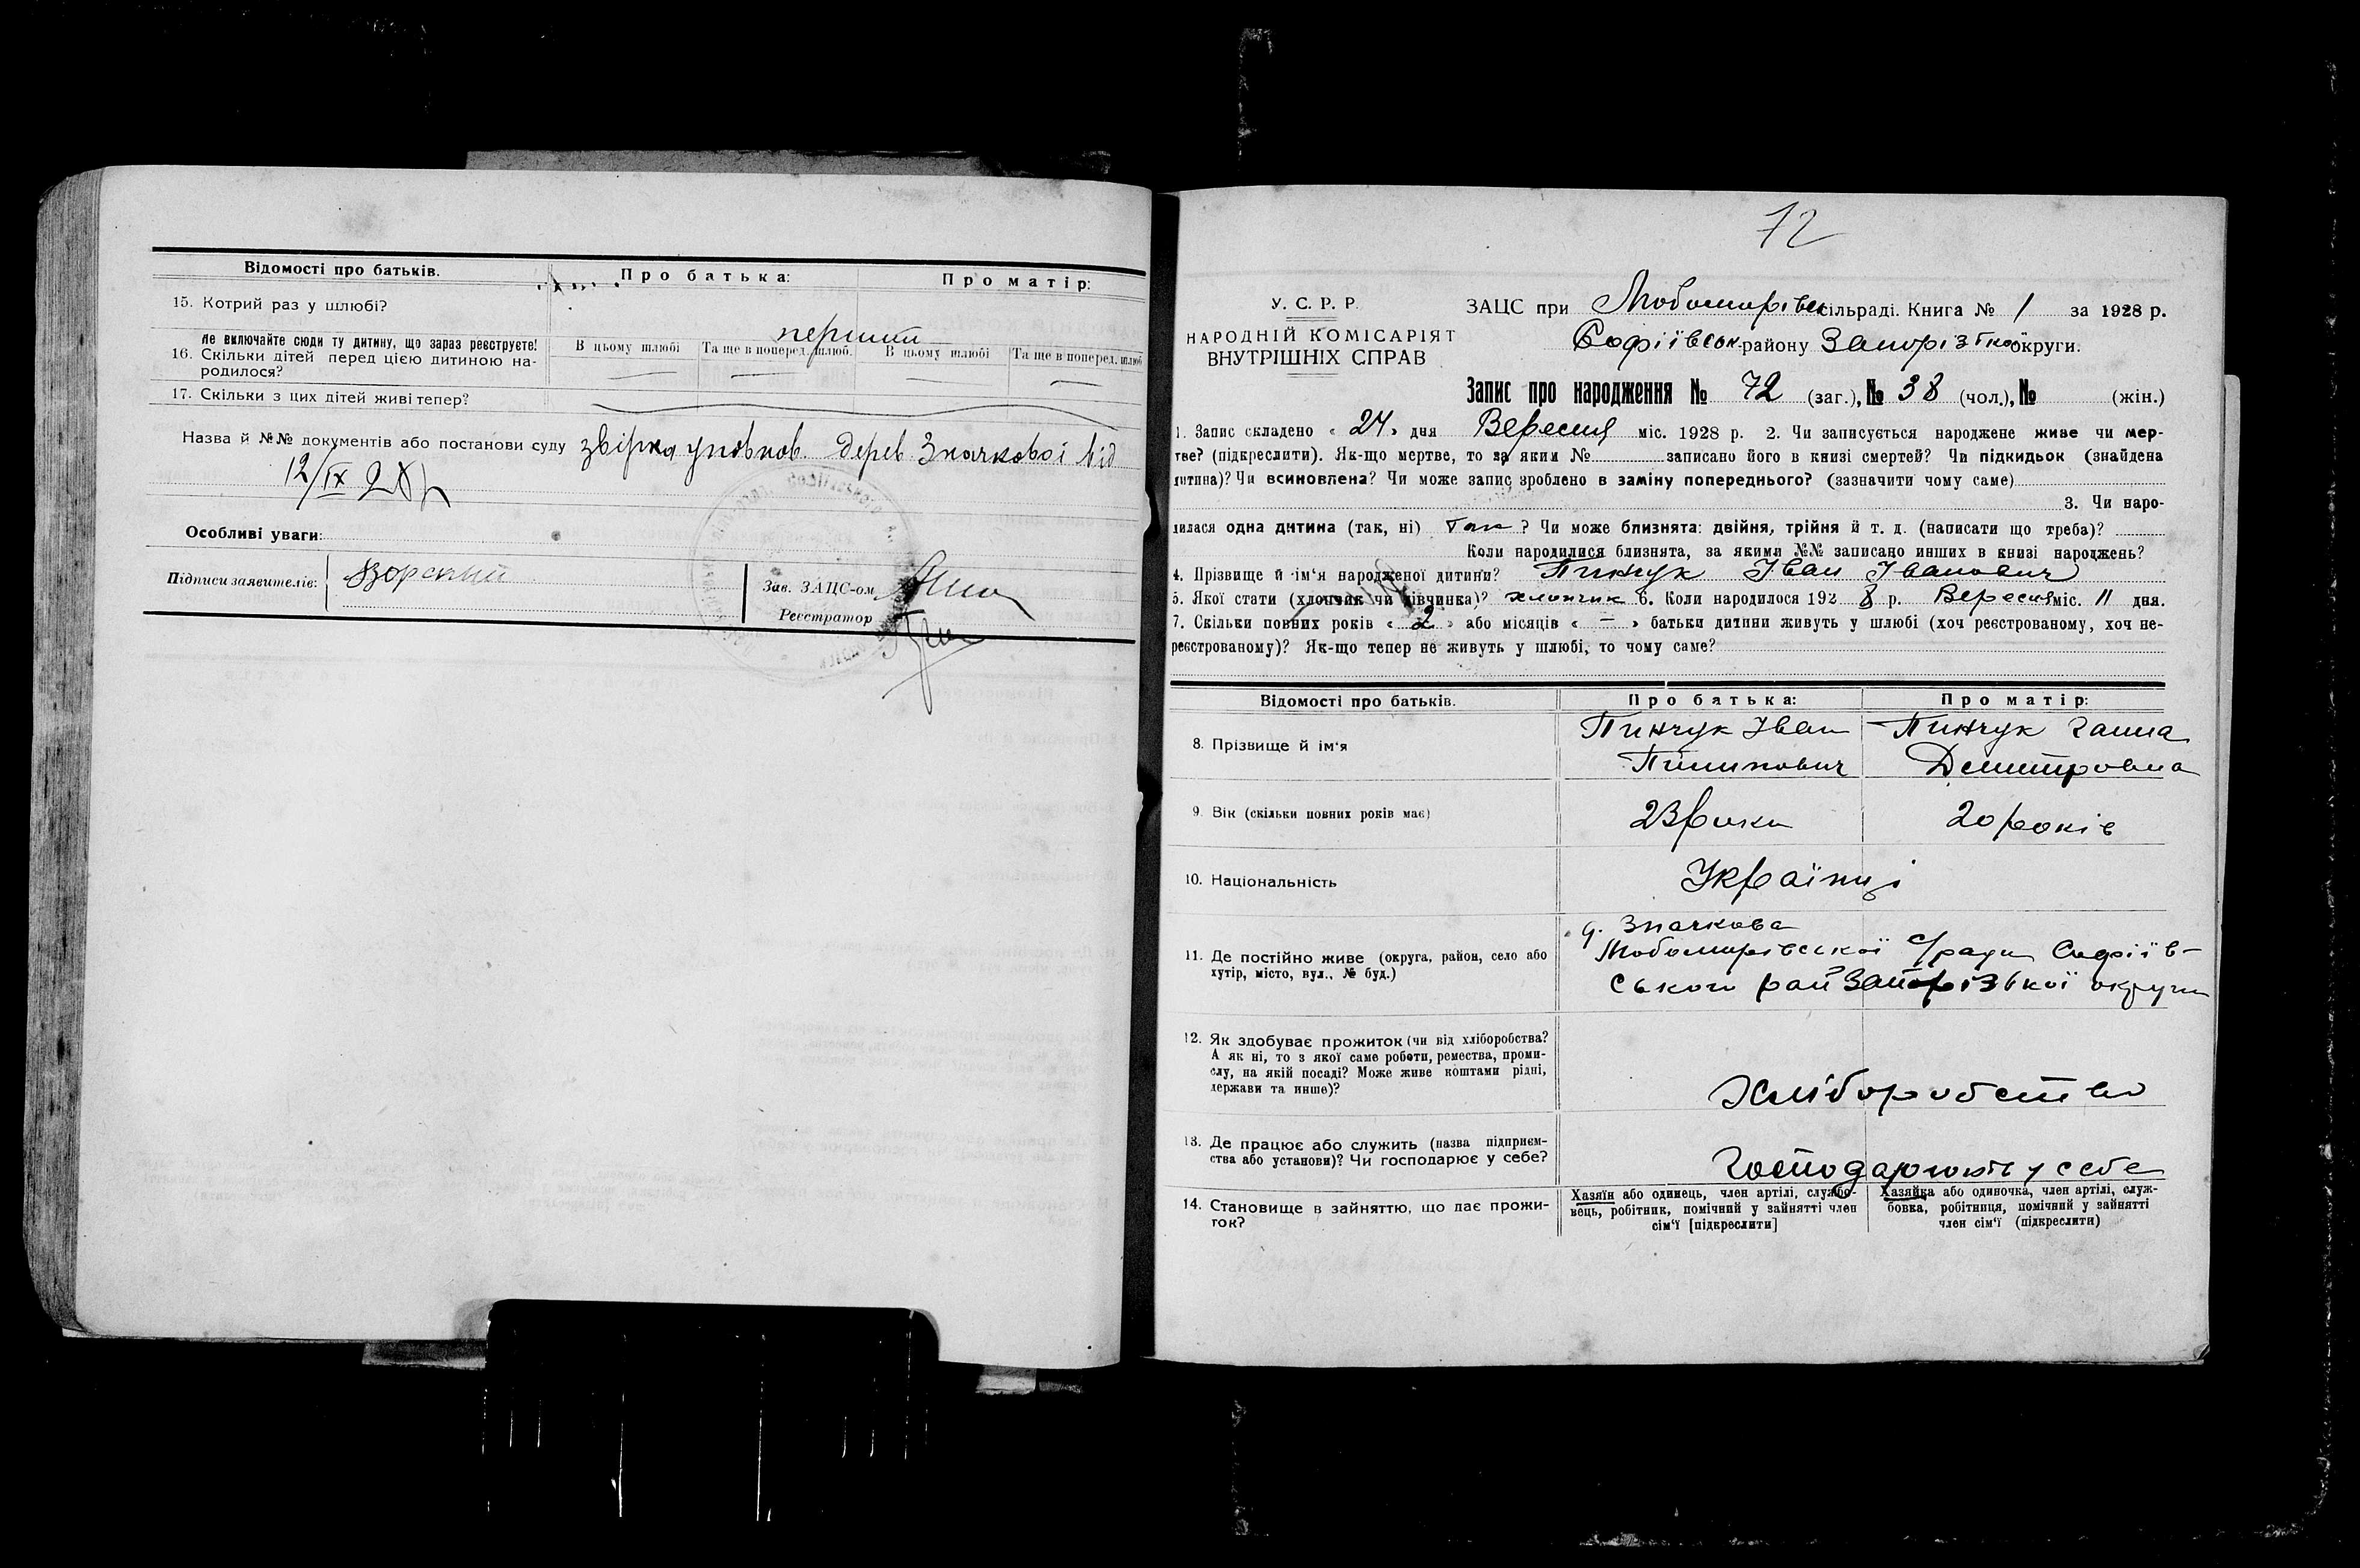 Відомості про батьків. Про батька: Про матір:
15. Котрий раз у шлюбі?
перший
Не включайте сюди ту дитину, що зараз реєструєте!
16. Скільки дітей перед цією дитиною на-
родилося?
В цьому шлюбі Та ще в поперед. шлюб. В цьому шлюбі Та ще в поперед. шлюб
— — — —
17. Скільки з цих дітей живі тепер?
Назва й №№ документів або постанови суду звірка уповнов. дерев. Значкової від
12/IX 28 р
Особливі уваги:
Підписи заявителів:
Зав. ЗАЦС-ом
Реєстратор
72
У. С. Р. Р.
НАРОДНІЙ КОМІСАРІЯТ
ВНУТРІШНІХ СПРАВ
ЗАЦС при Любомирівськ сільраді. Книга № 1 за 1928 р.
Софіївськ. району Запорізької округи.
Запис про народження № 72 (заг.), № 38 (чол.), № (жін.)
1. Запис складено « 24 » дня Вересня міс. 1928 р. 2. Чи записується народжене живе чи мер-
тве? (підкреслити). Як-що мертве, то за яким № записано його в книзі смертей? Чи підкидьок (знайдена
дитина)? Чи всиновлена? Чи може запис зроблено в заміну попереднього? (зазначити чому саме)
3. Чи наро-
дилася одна дитина (так, ні) так ? Чи може близнята: двійня, трійня й т. д. (написати що треба)?
Коли народилися близнята, за якими №№ записано инших в книзі народжень?
4. Прізвище й ім'я народженої дитини? Пинчук Іван Іванович
5. Якої стати (хлопчик чи дівчинка)? хлопчик 6. Коли народилося 192 8 р. Вересня міс. 11 дня.
7. Скільки повних років « 2 » або місяців « — » батьки дитини живуть у шлюбі (хоч реєстрованому, хоч не-
реєстрованому)? Як-що тепер не живуть у шлюбі, то чому саме?
Відомості про батьків. Про батька: Про матір:
8. Прізвище й ім'я
Пинчук Іван Пинчук Ганна
Пилипович Дмитровна
9. Вік (скільки повних років має) 23 роки 20 років
10. Національність Українці
11. Де постійно живе (округа, район, село або
хутір, місто, вул., № буд.)
д. Значкова
Любомирівської с/ради Софіїв-
ського рай Запорізької округи
12. Як здобуває прожиток (чи від хліборобства?
А як ні, то з якої саме роботи, ремества, проми-
слу, на якій посаді? Може живе коштами рідні,
держави та инше)?
Хліборобство
13. Де працює або служить (назва підприєм-
ства або установи)? Чи господарює у себе?
Господарюють у себе
14. Становище в зайняттю, що дає прожи-
ток?
Хазяїн або одинець, член артілі, службо-
вець, робітник, помічний у зайнятті член
сім'ї [підкреслити]
Хазяйка або одиночка, член артілі, служ-
бовка, робітниця, помічний у зайнятті
член сім'ї (підкреслити)